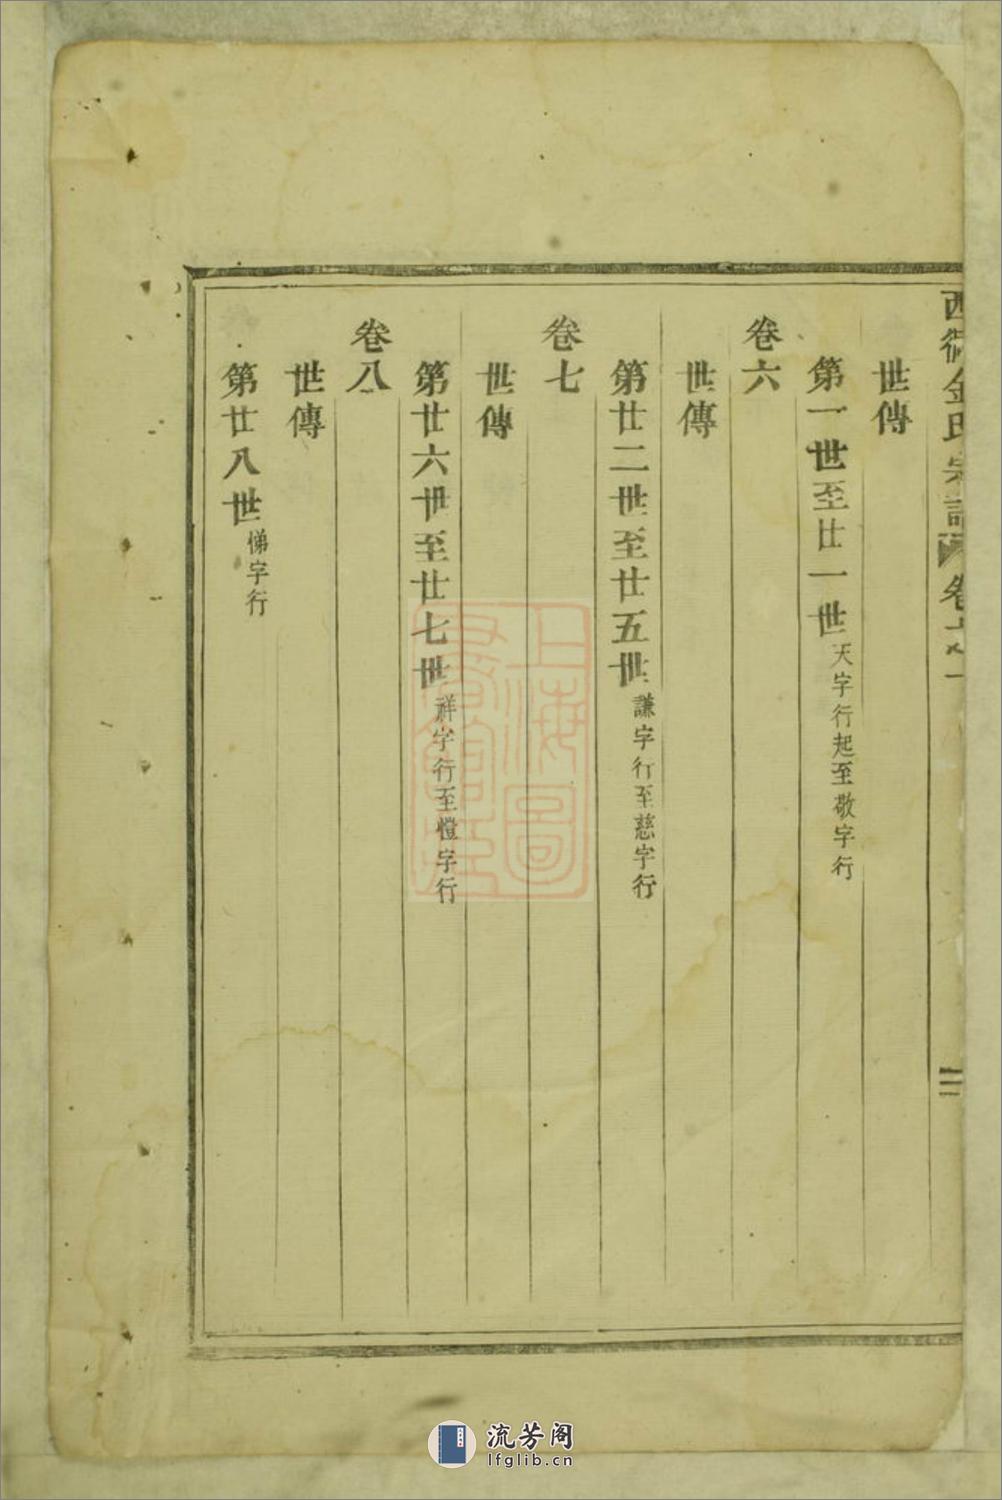 世傳
第一世至廿一世天字行起至敬字行
卷六
世傳
第廿二世至廿五世謙字行至慈字行
卷七
世傳
第廿六世至廿七世祥字行至愷字行
卷八
世傳
第廿八世悌字行
金氏宗譜
上海圖
流芳阁
lfglib.cn